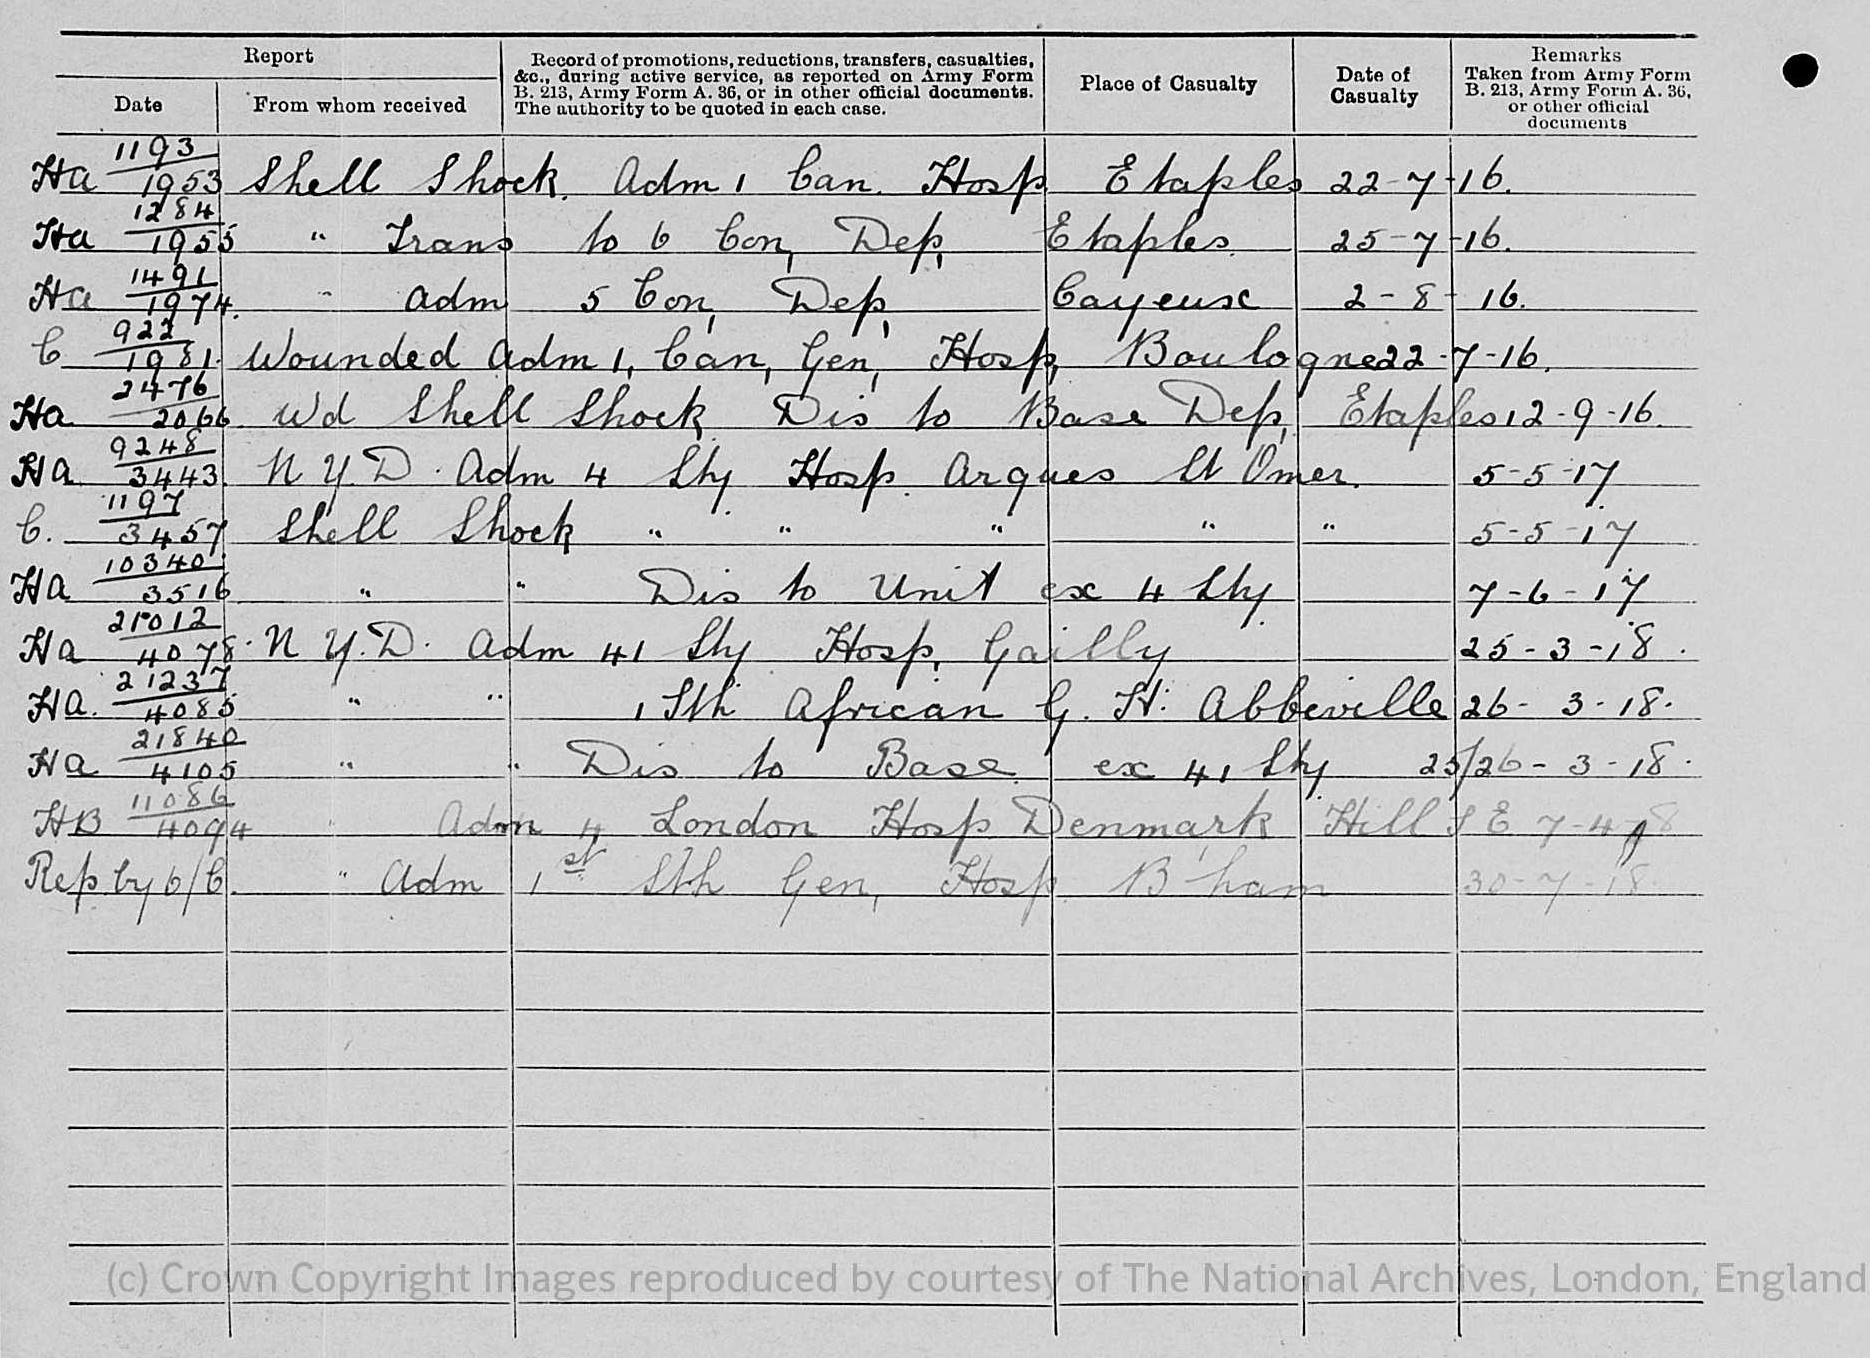 Report
Record of promotions, reductions, transfers, casualties, &c., during active service, as reported on Army Form B. 213, Army Form A. 36, or in other official documents. The authority to be quoted in each case.
Place of Casualty
Date of Casualty
Remarks Taken from Army Form B. 213, Army Form A. 36, or other official documents
Date
From whom received
Ha 1193/1953 Shell Shock. Adm 1 Can. Hosp Etaples 22-7-16.
Ha 1284/1955 " Trans to 6 Con, Dep, Etaples. 25-7-16.
Ha 1491/1974. " adm 5 Con, Dep, Cayeux 2-8-16.
C 922/1981. Wounded adm 1, Can, Gen, Hosp, Boulogne 22-7-16.
Ha 2476/2066 Wd Shell Shock Dis to Base Dep, Etaples 12-9-16.
Ha 9248/3443. N Y. D. Adm 4 Sty Hosp. Arques St Omer. 5-5-17
C. 1197/3457 Shell Shock " " " " " 5-5-17
Ha 10340/3516 " " Dis to Unit ex 4 Sty 7-6-17
Ha 21012/4078. N Y. D. Adm 41 Sty Hosp, Gailly 25-3-18.
Ha. 21237/4085 " " 1 Sth African G. H. Abbeville 26-3-18.
Ha 21840/4105 " " Dis to Base ex 41 Sty 25/26-3-18.
HB 11086/4094 " Adm 4 London Hosp Denmark Hill S E 7-4-18
Rep by 6/C. " Adm 1st Sth Gen, Hosp B'ham 30-7-18.
(c) Crown Copyright Images reproduced by courtesy of The National Archives, London, England